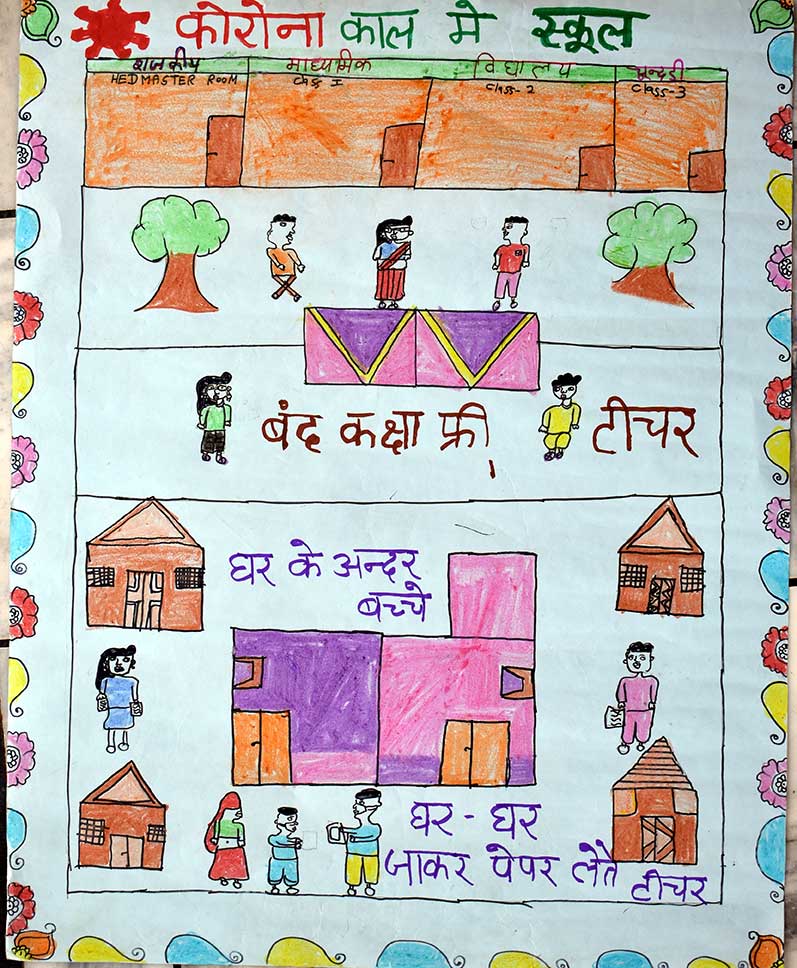 कोरोना काल मे स्कूल
राजकीय माध्यमिक विधालय
HEDMASTER ROOM class I class-2 class-3
बंद कक्षा फ्री टीचर
घर के अन्दर
बच्चे
घर - घर
जाकर पेपर लेते टीचर